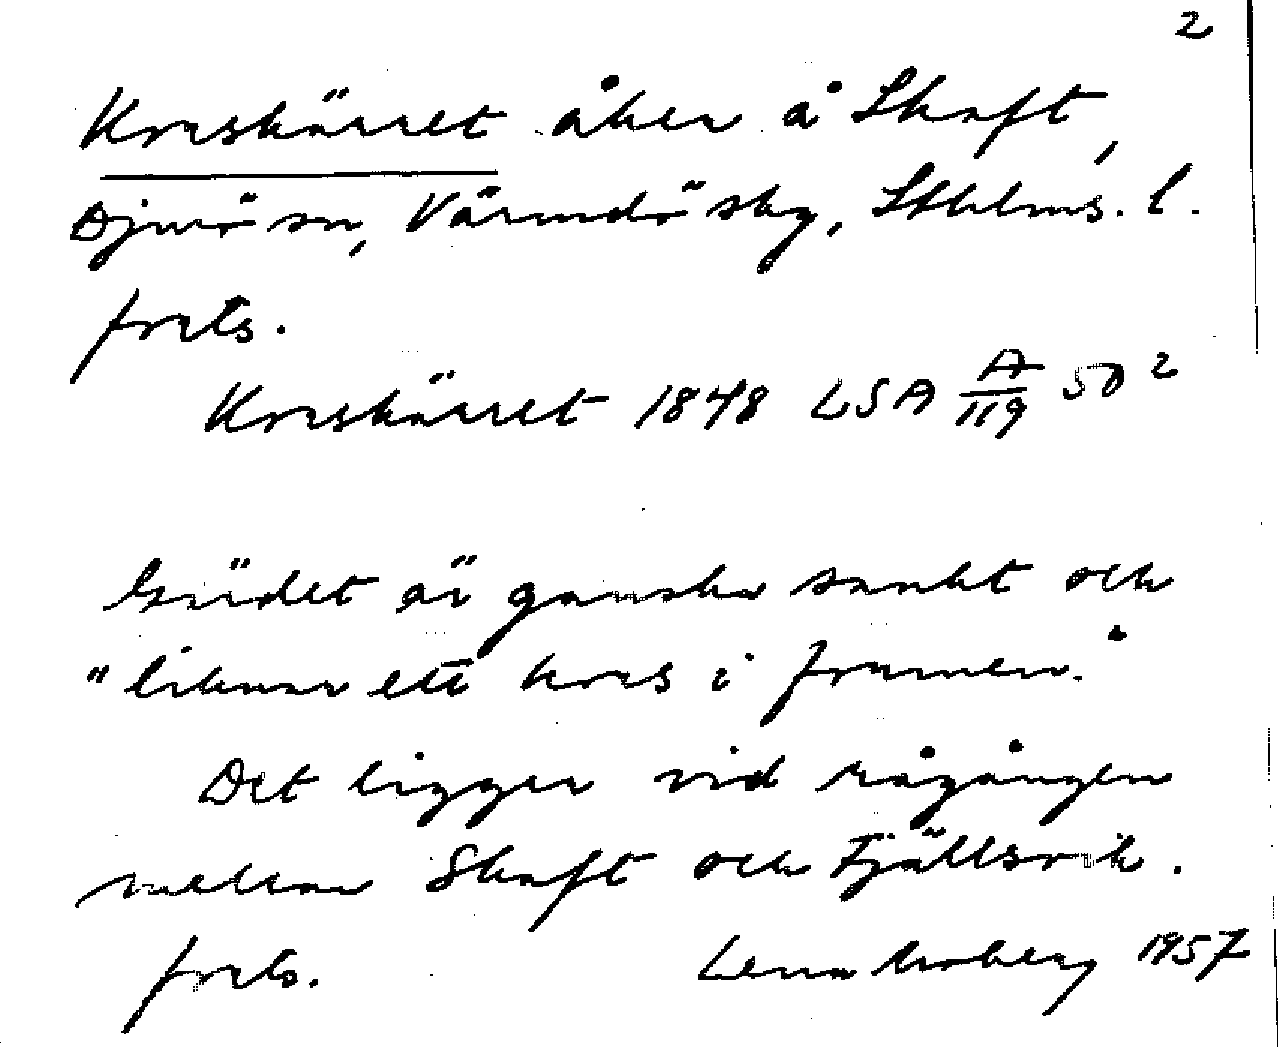 2
Korskärret åker å Skaft,
Djurö sn, Värmdö skg, Sthlms. l.
forts.
Korskärret 1848 LSA A/119 50 2
Gärdet är ganska sankt och
"liknar ett kors i formen."
Det ligger vid rågången
mellan Skaft och Fjällsvik.
forts. Lena Moberg 1957